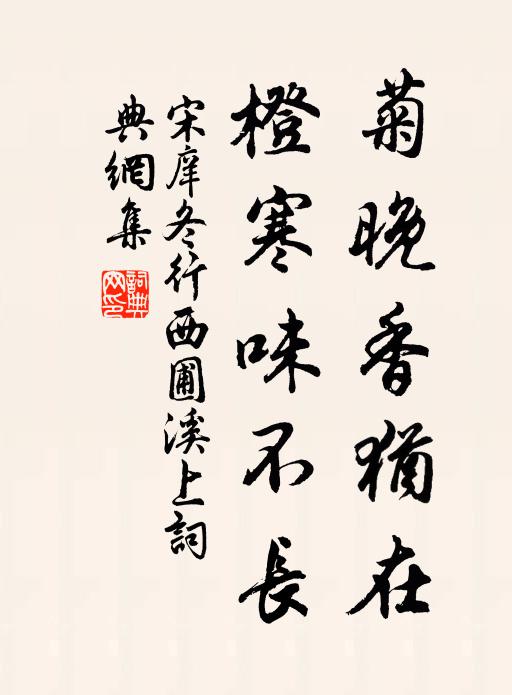 菊晚香猶在
橙寒味不長
宋庠冬行西圃溪上詞
典網集
詞典
网印